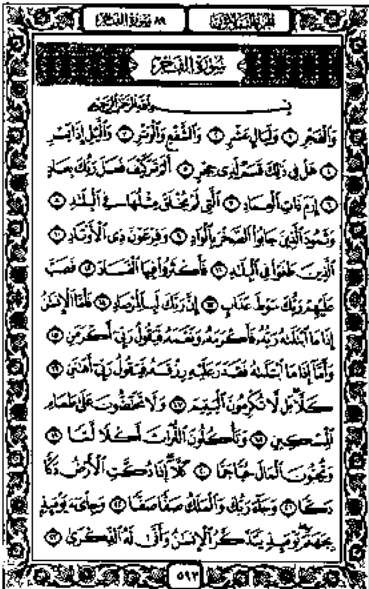 الجزء الثلاثون ٨٩ سورة الفجر
سورة الفجر
بسم الله الرحمن الرحيم
وَالْفَجْرِ ١ وَلَيَالٍ عَشْرٍ ٢ وَالشَّفْعِ وَالْوَتْرِ ٣ وَاللَّيْلِ إِذَا يَسْرِ
٤ هَلْ فِي ذَٰلِكَ قَسَمٌ لِّذِي حِجْرٍ ٥ أَلَمْ تَرَ كَيْفَ فَعَلَ رَبُّكَ بِعَادٍ
٦ إِرَمَ ذَاتِ الْعِمَادِ ٧ الَّتِي لَمْ يُخْلَقْ مِثْلُهَا فِي الْبِلَادِ ٨
وَثَمُودَ الَّذِينَ جَابُوا الصَّخْرَ بِالْوَادِ ٩ وَفِرْعَوْنَ ذِي الْأَوْتَادِ ١٠
الَّذِينَ طَغَوْا فِي الْبِلَادِ ١١ فَأَكْثَرُوا فِيهَا الْفَسَادَ ١٢ فَصَبَّ
عَلَيْهِمْ رَبُّكَ سَوْطَ عَذَابٍ ١٣ إِنَّ رَبَّكَ لَبِالْمِرْصَادِ ١٤ فَأَمَّا الْإِنسَانُ
إِذَا مَا ابْتَلَاهُ رَبُّهُ فَأَكْرَمَهُ وَنَعَّمَهُ فَيَقُولُ رَبِّي أَكْرَمَنِ ١٥
وَأَمَّا إِذَا مَا ابْتَلَاهُ فَقَدَرَ عَلَيْهِ رِزْقَهُ فَيَقُولُ رَبِّي أَهَانَنِ ١٦
كَلَّا بَل لَّا تُكْرِمُونَ الْيَتِيمَ ١٧ وَلَا تَحَاضُّونَ عَلَىٰ طَعَامِ
الْمِسْكِينِ ١٨ وَتَأْكُلُونَ التُّرَاثَ أَكْلًا لَّمًّا ١٩
وَتُحِبُّونَ الْمَالَ حُبًّا جَمًّا ٢٠ كَلَّا إِذَا دُكَّتِ الْأَرْضُ دَكًّا
دَكًّا ٢١ وَجَاءَ رَبُّكَ وَالْمَلَكُ صَفًّا صَفًّا ٢٢ وَجِيءَ يَوْمَئِذٍ
بِجَهَنَّمَ يَوْمَئِذٍ يَتَذَكَّرُ الْإِنسَانُ وَأَنَّىٰ لَهُ الذِّكْرَىٰ ٢٣
٥٩٣